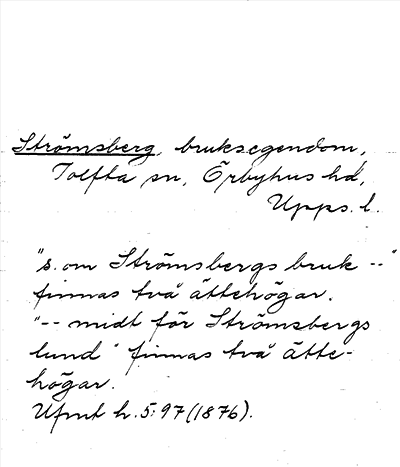 Strömsberg, bruksegendom,
Tolfta sn, Örbyhus hd,
Upps. l.
"s. om Strömsbergs bruk --"
finnas två ättehögar.
"-- midt för Strömsbergs
lund" finnas två ätte-
högar.
Ufmt h. 5:97 (1876).